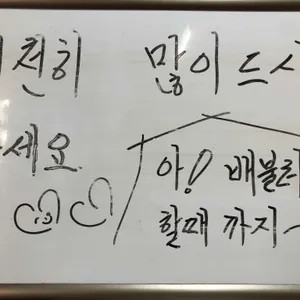 천히 많이 드시
세요
아! 배불
할때 까지~